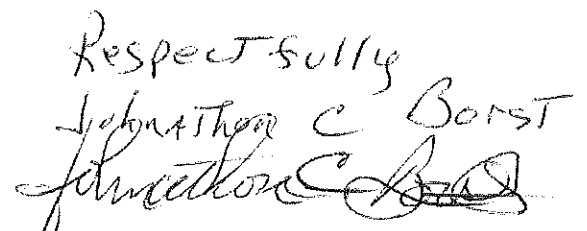 Respectfully
Johnathon C Borst
Johnathon C Borst